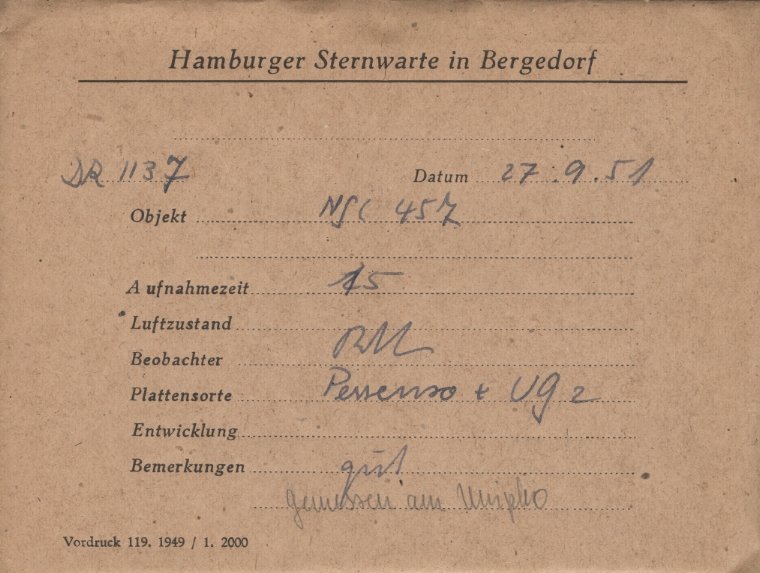 Hamburger Sternwarte in Bergedorf
DR 1137 Datum 27.9.51
Objekt NGC 457
Aufnahmezeit 15
Luftzustand
Beobachter
Plattensorte Persenso + UG 2
Entwicklung
Bemerkungen gut
gemessen am Unipho
Vordruck 119. 1949 / 1. 2000